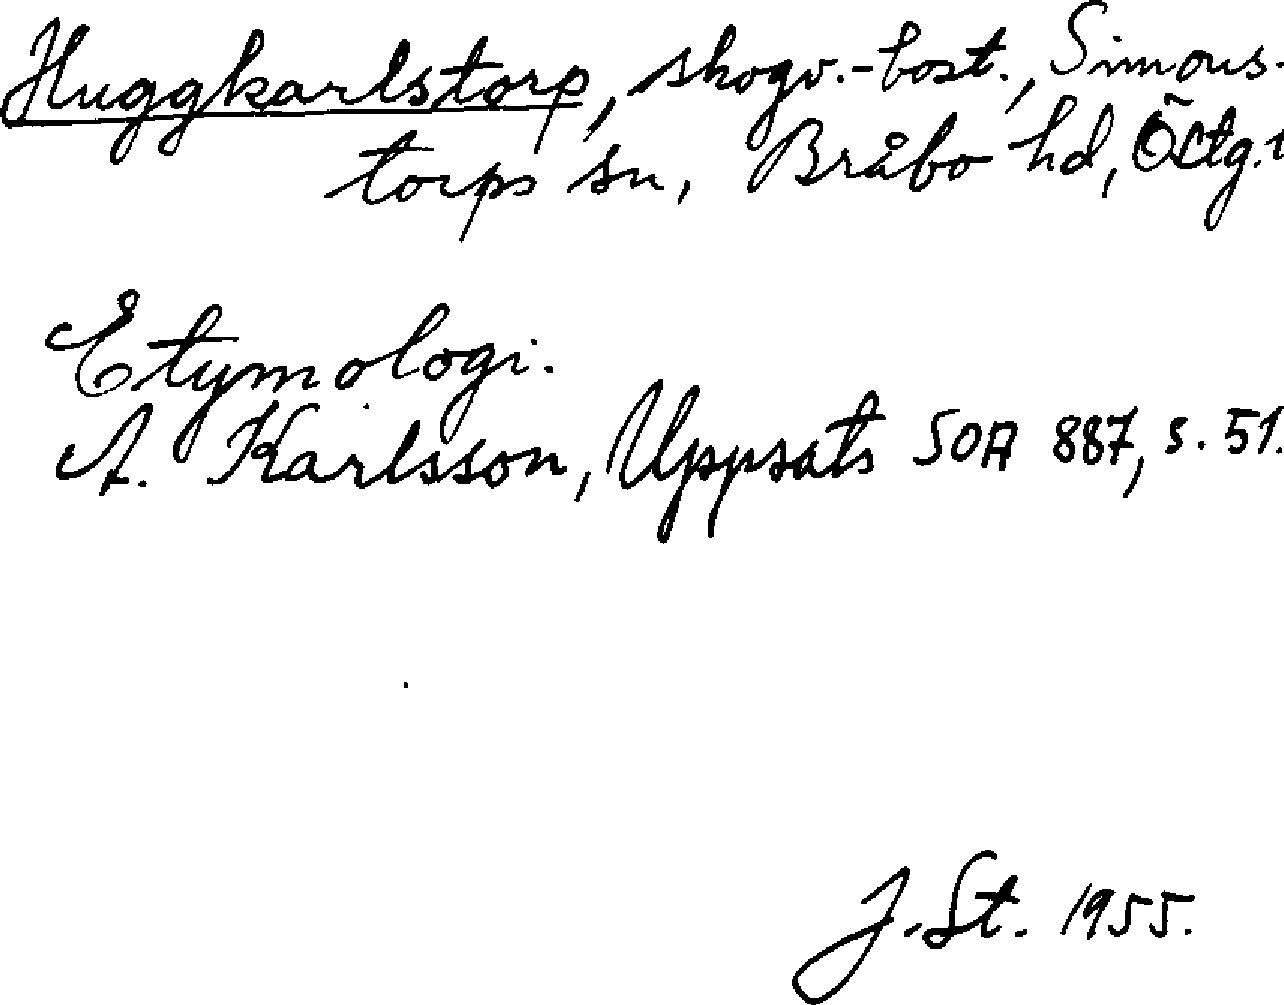 Huggkarlstorp, skogv.-bost., Simons-
torps sn, Bråbo hd, Östg.
Etymologi.
A. Karlsson, Uppsats SOA 887, s. 51.
J. St. 1955.